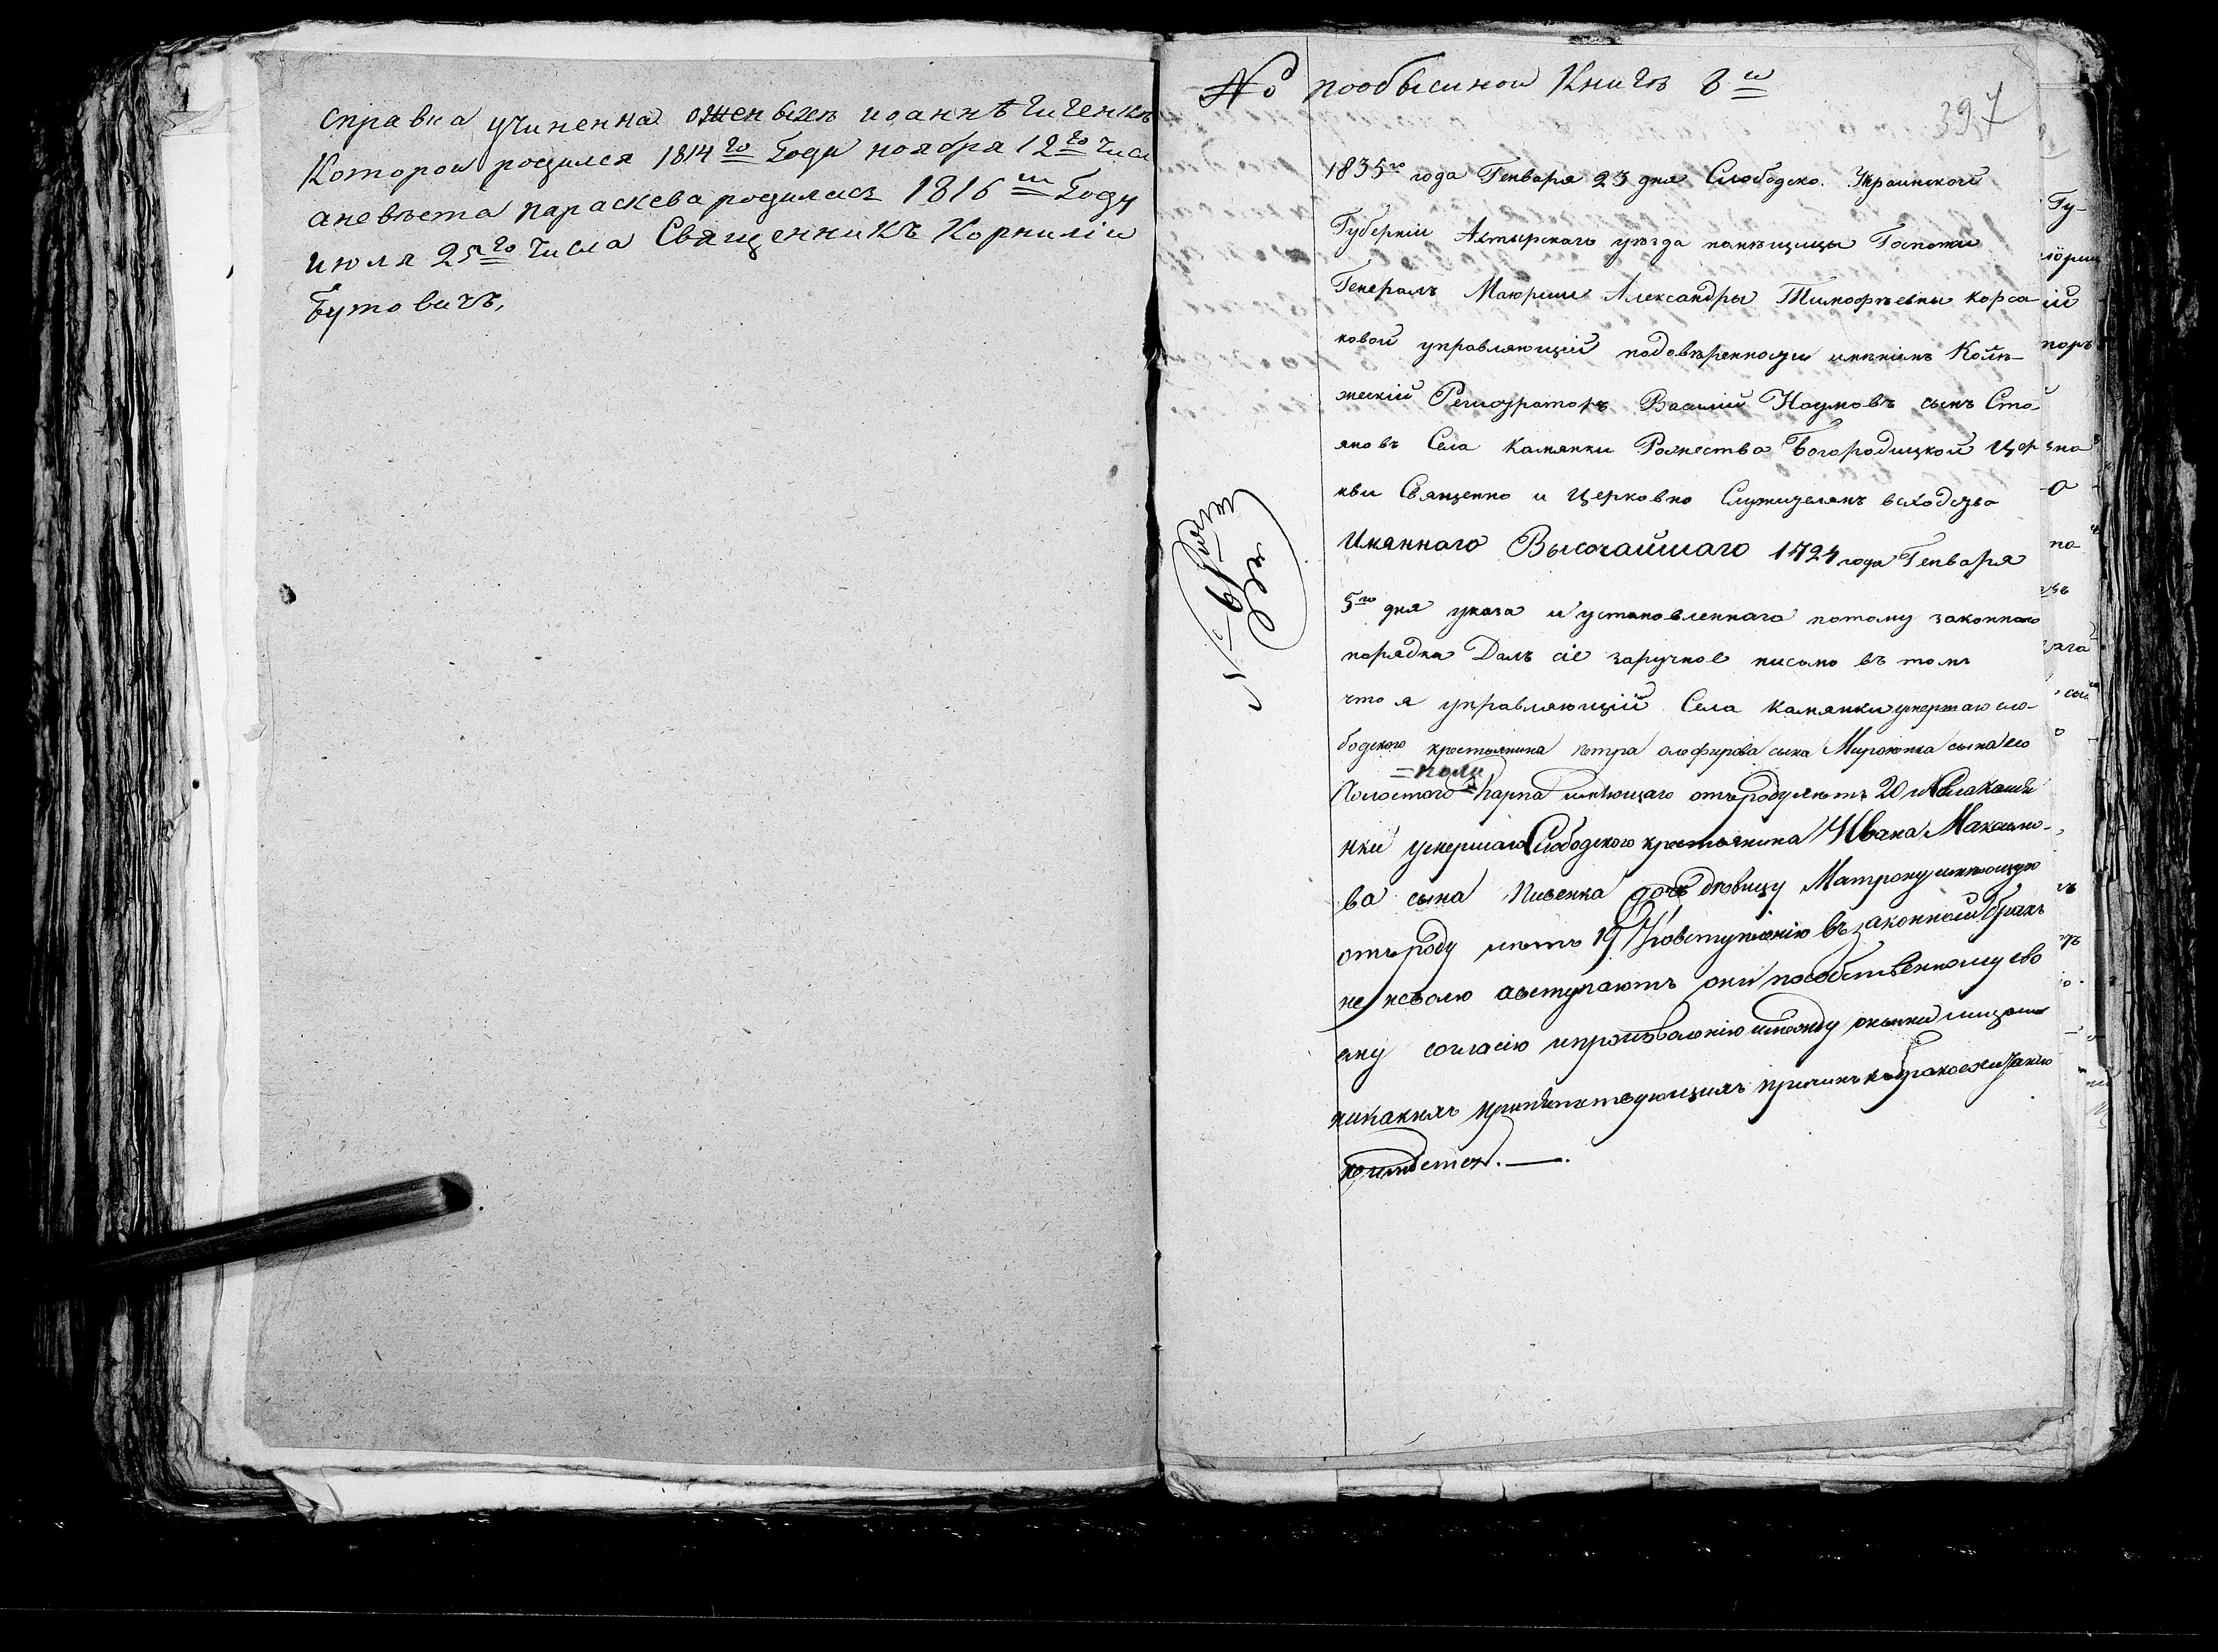 справка учиненна оженыхѣ иоаннѣ Чиченкѣ
Которои родился 1814го Году ноября 12го Числ
аневѣста параскева родилась 1816ш Году
июля 25го Числа Священникъ Корнилiи
Бутовичъ,
№ пообысинои Книгѣ 8и
397
1835го года Генваря 23 дня Слободско. Украинской
Губернiи Ахтырскаго уѣзда помѣщицы Госпожи
Генералъ Маiорши Александры Тимофѣевны Корса
ковой управляющiй подовѣренности имѣнiемъ Колѣ-
жескiй Регистраторъ Василiй Наумовъ сынъ Сто-
яновъ Села Камянки Рожества Богородицкой Цер
кви Священно и Церковно Служителямъ всходство
Имяннаго Высочайшаго 1724 года Генваря
5го дня указа и установленнаго потому законнаго
порядка Далъ сiе заручное письмо въ томъ
что я управляющiй Села Камянки умершаго сло-
бодского крестьянина Петра олефирова сына Миронка сына его
Холостого Карпа имѣющаго отъроду лѣтъ 20 и Села Камя
нки умершаго Слободского крестьянина Ивана Максимо-
ва сына Пивенка дочь дѣвицу Матрону имѣющую
отъ роду лѣтъ 19 Ковступленiю въ законной бракъ
не неволю авступаютъ они пособственному сво
ему согласiю ипроизволенiю имежду оными
никакихъ препятствующихъ причинъ къ бракосочетанiю
неимѣется.